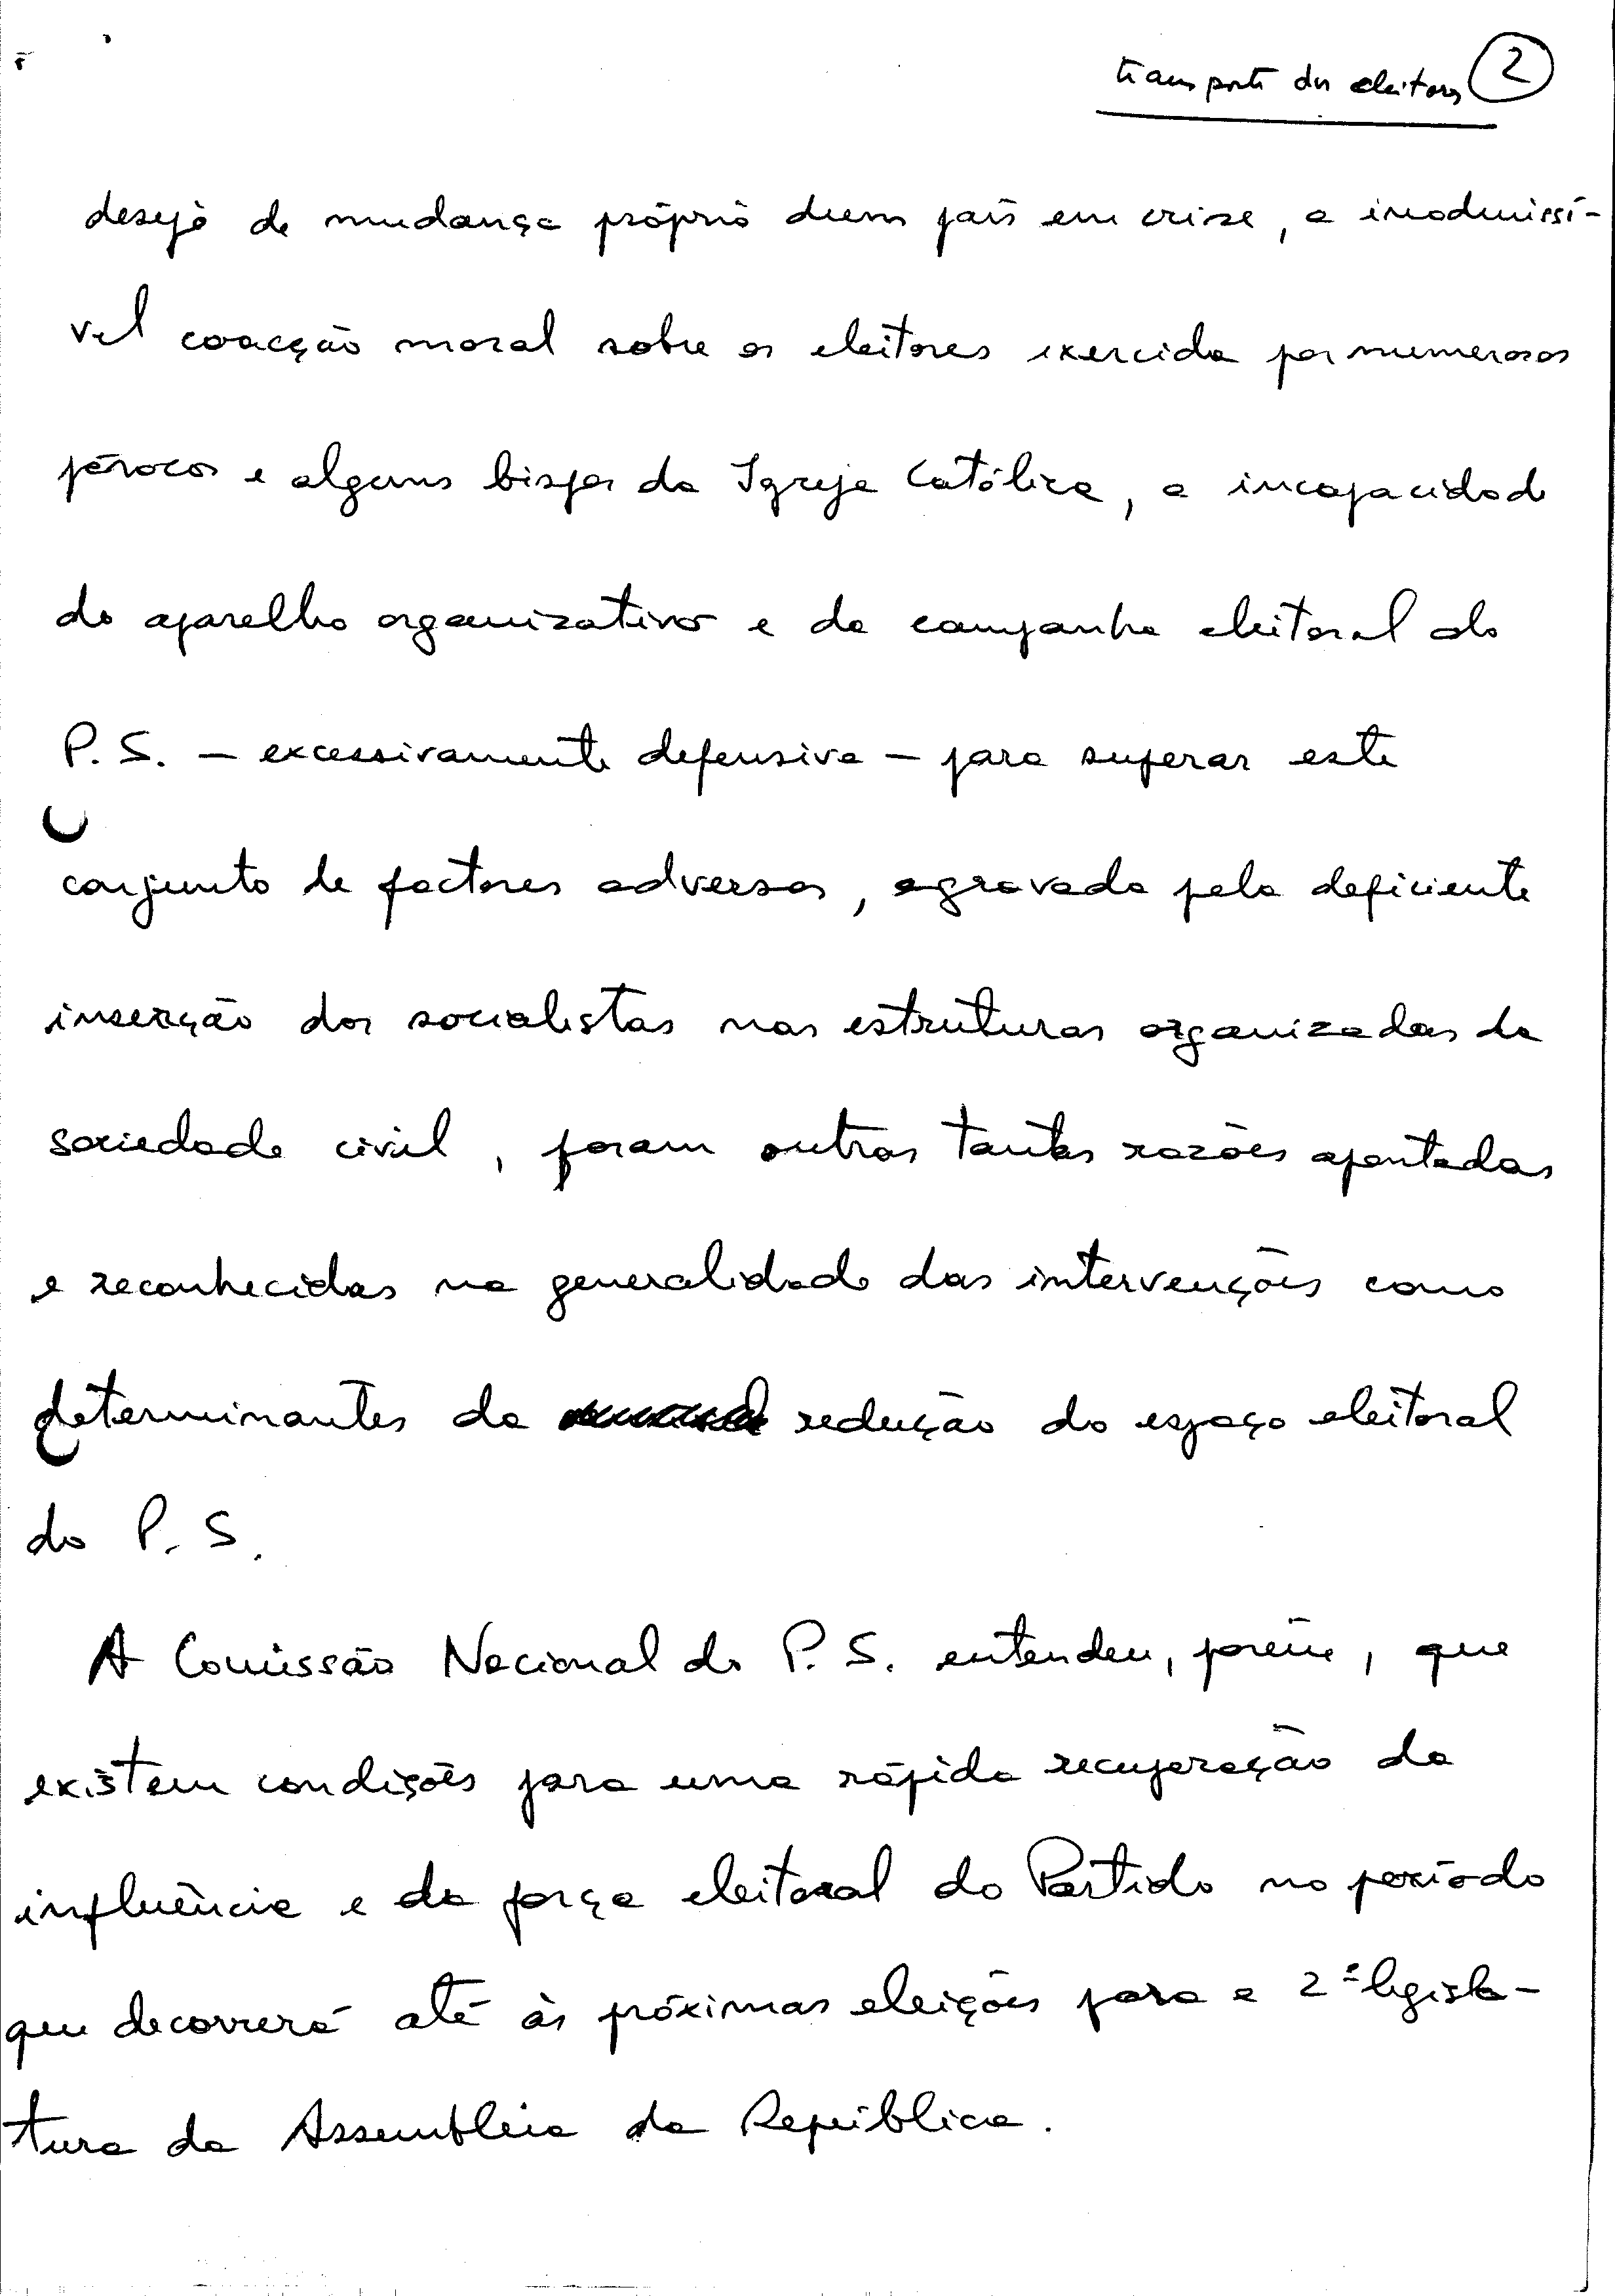 transporte dos eleitores 2
desejo de mudança próprio dum país em crise, a inadmissí-
vel coacção moral sobre os eleitores exercida por numerosos
párocos e alguns bispos da Igreja Católica, a incapacidade
do aparelho organizativo e da campanha eleitoral do
P.S. — excessivamente defensiva — para superar este
conjunto de factores adversos, agravada pela deficiente
inserção dos socialistas nas estruturas organizadas da
sociedade civil, foram outras tantas razões apontadas
e reconhecidas na generalidade das intervenções como
determinantes da redução do espaço eleitoral
do P.S.
A Comissão Nacional do P.S. entendeu, porém, que
existem condições para uma rápida recuperação da
influência e da força eleitoral do Partido no período
que decorrerá até às próximas eleições para a 2ª legisla-
tura da Assembleia da República.